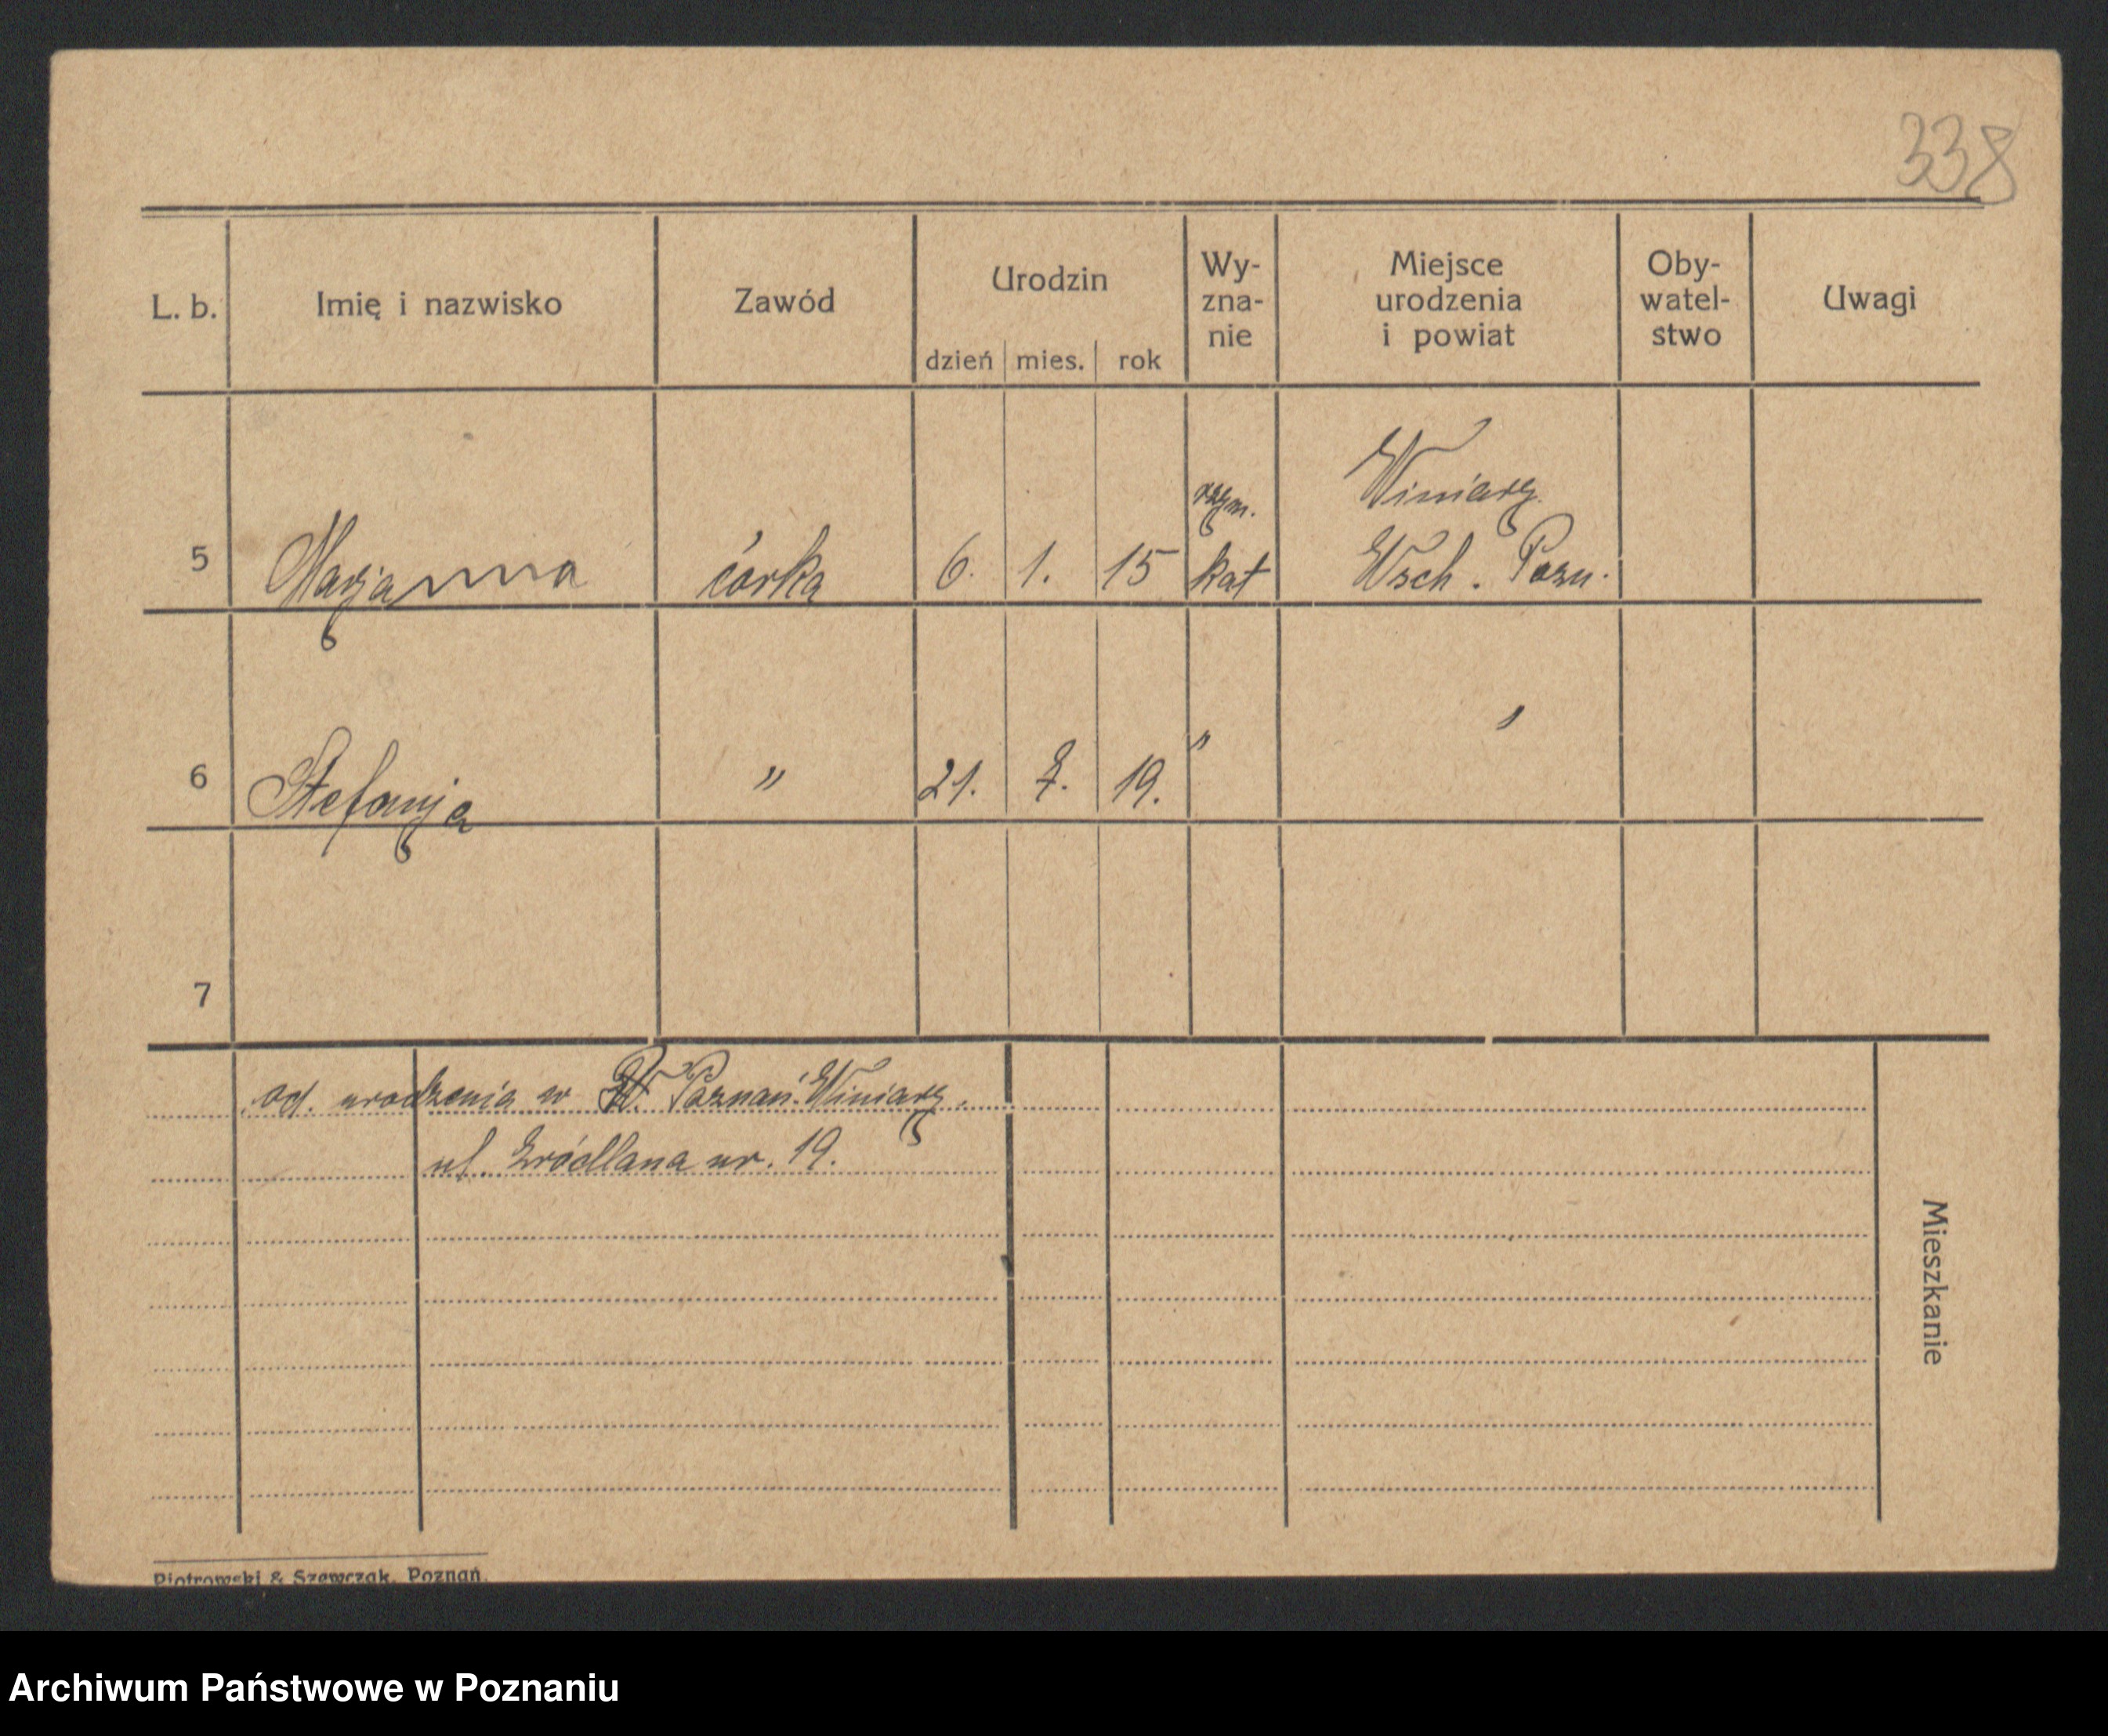 338
L. b.
Imię i nazwisko
Zawód
Urodzin
dzień mies. rok
Wy-
zna-
nie
Miejsce
urodzenia
i powiat
Oby-
watel-
stwo
Uwagi
5 Marjanna córka 6. 1. 15 rzym. kat Winiary
Wsch. Pozn.
6 Stefanja " 21. 7. 19. " "
7
od urodzenia w Poznań-Winiary.
ul. Źródlana nr. 19.
Mieszkanie
Piotrowski & Szewczak, Poznań.
Archiwum Państwowe w Poznaniu